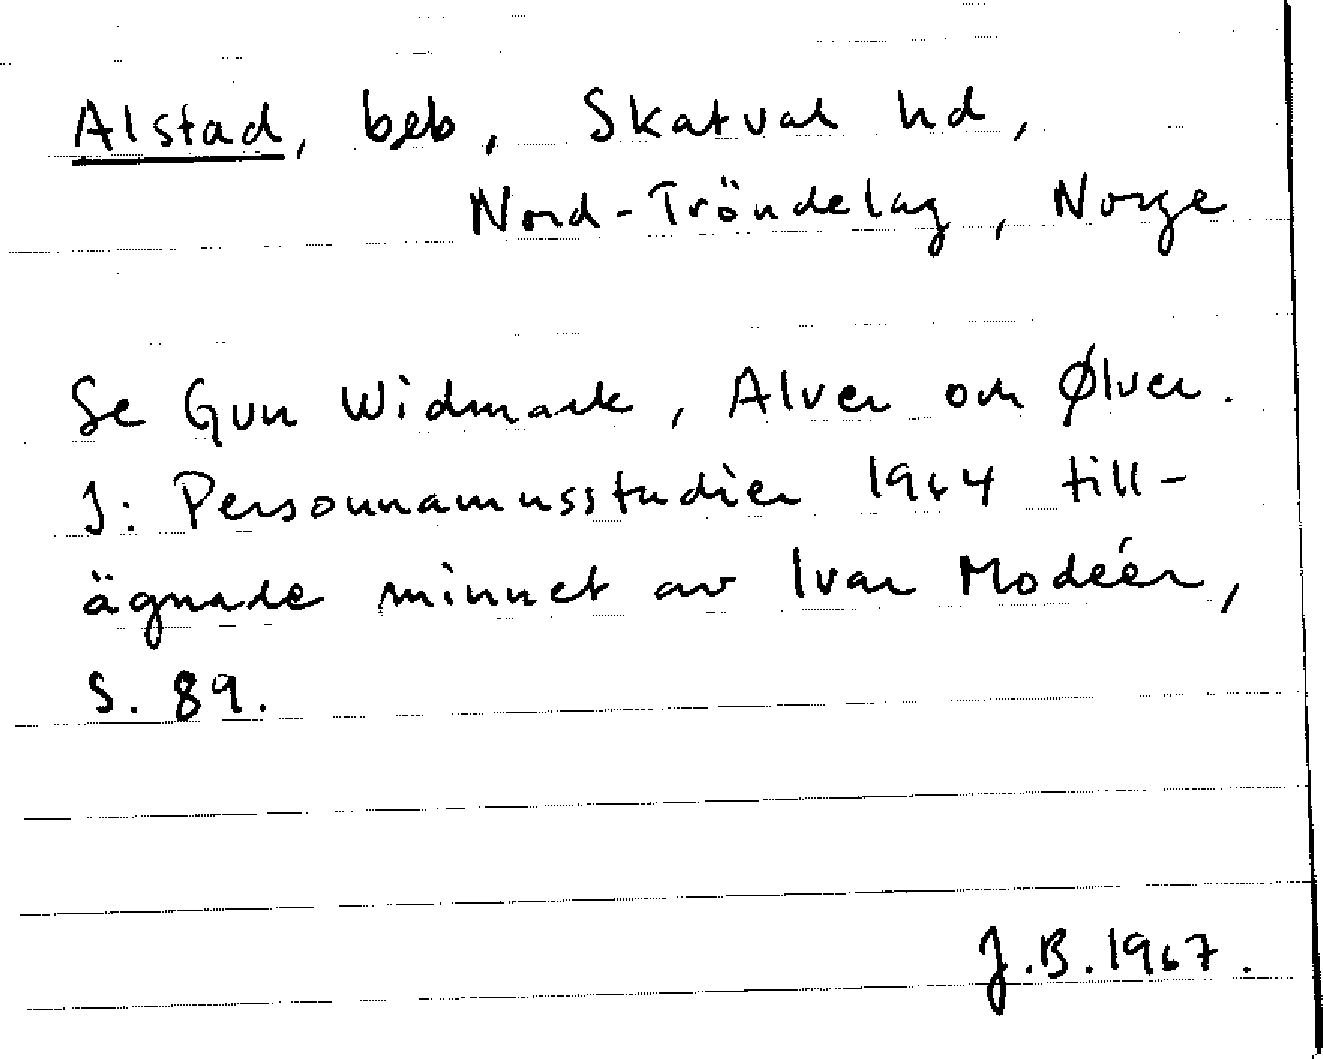 Alstad, beb, Skatval hd,
Nord-Tröndelag, Norge
Se Gun Widmark, Alver och Ølver.
I: Personnamnsstudier 1964 till-
ägnade minnet av Ivar Modéer,
S. 89.
J.B. 1967.